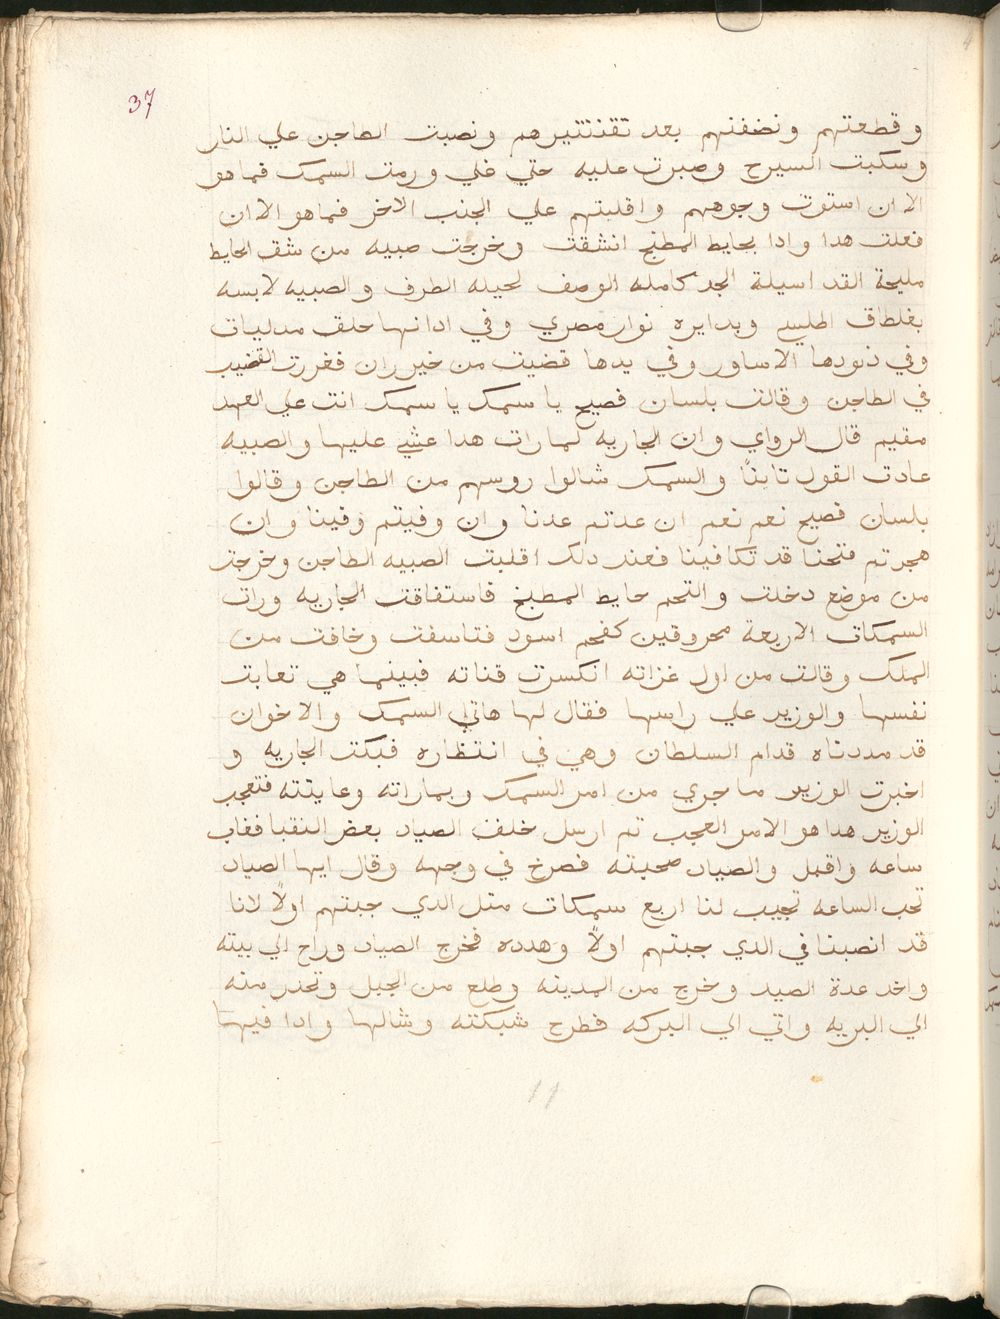 37
وقطعتهم ونضفتهم بعد تقنتتيرهم ونصبت الطاجن علي النار
وسكبت السيرج وصبرت عليه حتي غلي ورمت السمك فما هو
الا ان استوت وجوههم واقلبتهم علي الجنب الاخر فما هو الا ان
فعلت هدا وادا بحايط المطبخ انشقت وخرجت صبيه من شق الحايط
مليحة القد اسيلة الخد كامله الوصف لحيله الطرف والصبيه لابسه
بغلطاق اطلس وبدايره نوار مصري وفي ادانها حلق مدليات
وفي زنودها الاساور وفي يدها قضيب من خيرران فغررت القضيب
في الطاجن وقالت بلسان فصيح يا سمك يا سمك انت علي العهد
مقيم قال الرواي وان الجاريه لما رات هدا عشي عليها والصبيه
عادت القول تانيًا والسمك شالوا روسهم من الطاجن وقالوا
بلسان فصيح نعم نعم ان عدتم عدنا وان وفيتم وفينا وان
هجرتم فنحنا قد تكافينا فعند دلك اقلبت الصبيه الطاجن وخرجت
من موضع دخلت والتحم حايط المطبخ فاستفاقت الجاريه ورات
السمكات الاربعة محروقين كفحم اسود فتاسفت وخافت من
الملك وقالت من اول غزاته انكسرت قناته فبينما هي تعابت
نفسها والوزير علي راسها فقال لها هاتي السمك والاخوان
قد مددناه قدام السلطان وهي في انتظاره فبكت الجاريه و
اخبرت الوزير ما جري من امر السمك وبماراته وعاينته فتعجب
الوزير هدا هو الامر العجب تم ارسل خلف الصياد بعض النقبا فغاب
ساعه واقبل والصياد صحبته فصرخ في وجهه وقال ايها الصياد
تحب الساعه تجيب لنا اربع سمكات متل الدي جبتهم اولاً لانا
قد انصبنا في الدي جبتهم اولاً وهدده فخرج الصياد وراح الي بيته
واخد عدة الصيد وخرج من المدينه وطلع من الجبل وتحدر منه
الي البريه واتي الي البركه فطرح شبكته وشالها وادا فيها